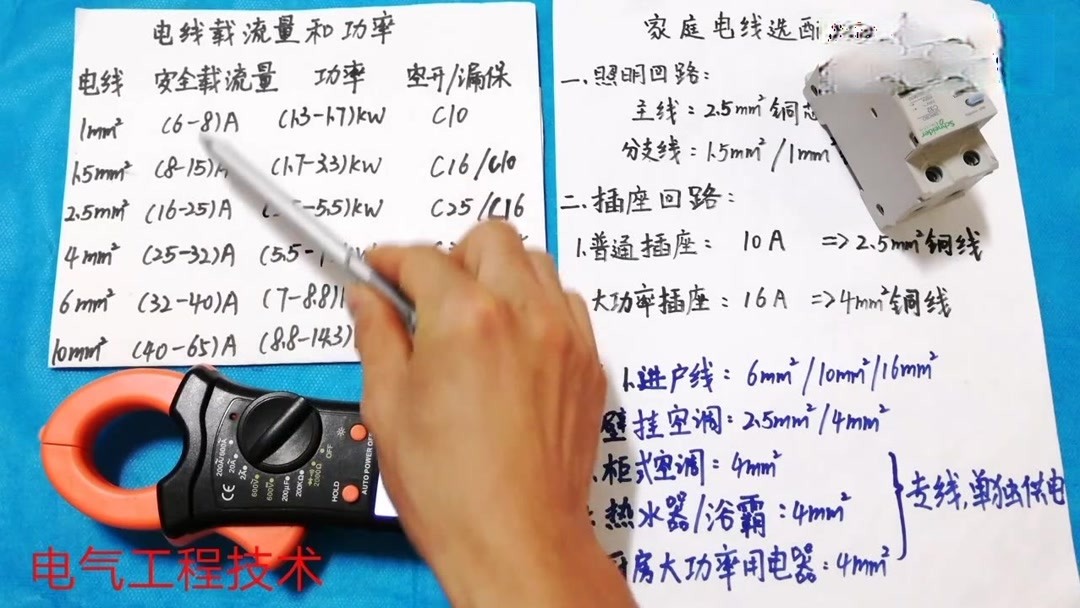 电线载流量和功率
电线 安全载流量 功率 空开/漏保
1mm² (6-8)A (1.3-1.7)kW C10
1.5mm² (8-15)A (1.7-3.3)kW C16/C10
2.5mm² (16-25)A 5.5)kW C25/C16
4mm² (25-32)A (5.5-
6mm² (32-40)A (7-8.8)
10mm² (40-65)A (8.8-14.3)
家庭电线选配
一.照明回路:
主线: 2.5mm²铜芯
分支线: 1.5mm²/1mm²
二.插座回路:
1.普通插座: 10A => 2.5mm²铜线
大功率插座: 16A => 4mm²铜线
1.进户线: 6mm²/10mm²/16mm²
壁挂空调: 2.5mm²/4mm²
柜式空调: 4mm²
热水器/浴霸: 4mm²
厨房大功率用电器: 4mm²
专线,单独供电
Schneider
200A/600A
20A
2A
600V
600V
200μF
200KΩ
2000Ω
OFF
CE
HOLD
AUTO POWER OFF
电气工程技术